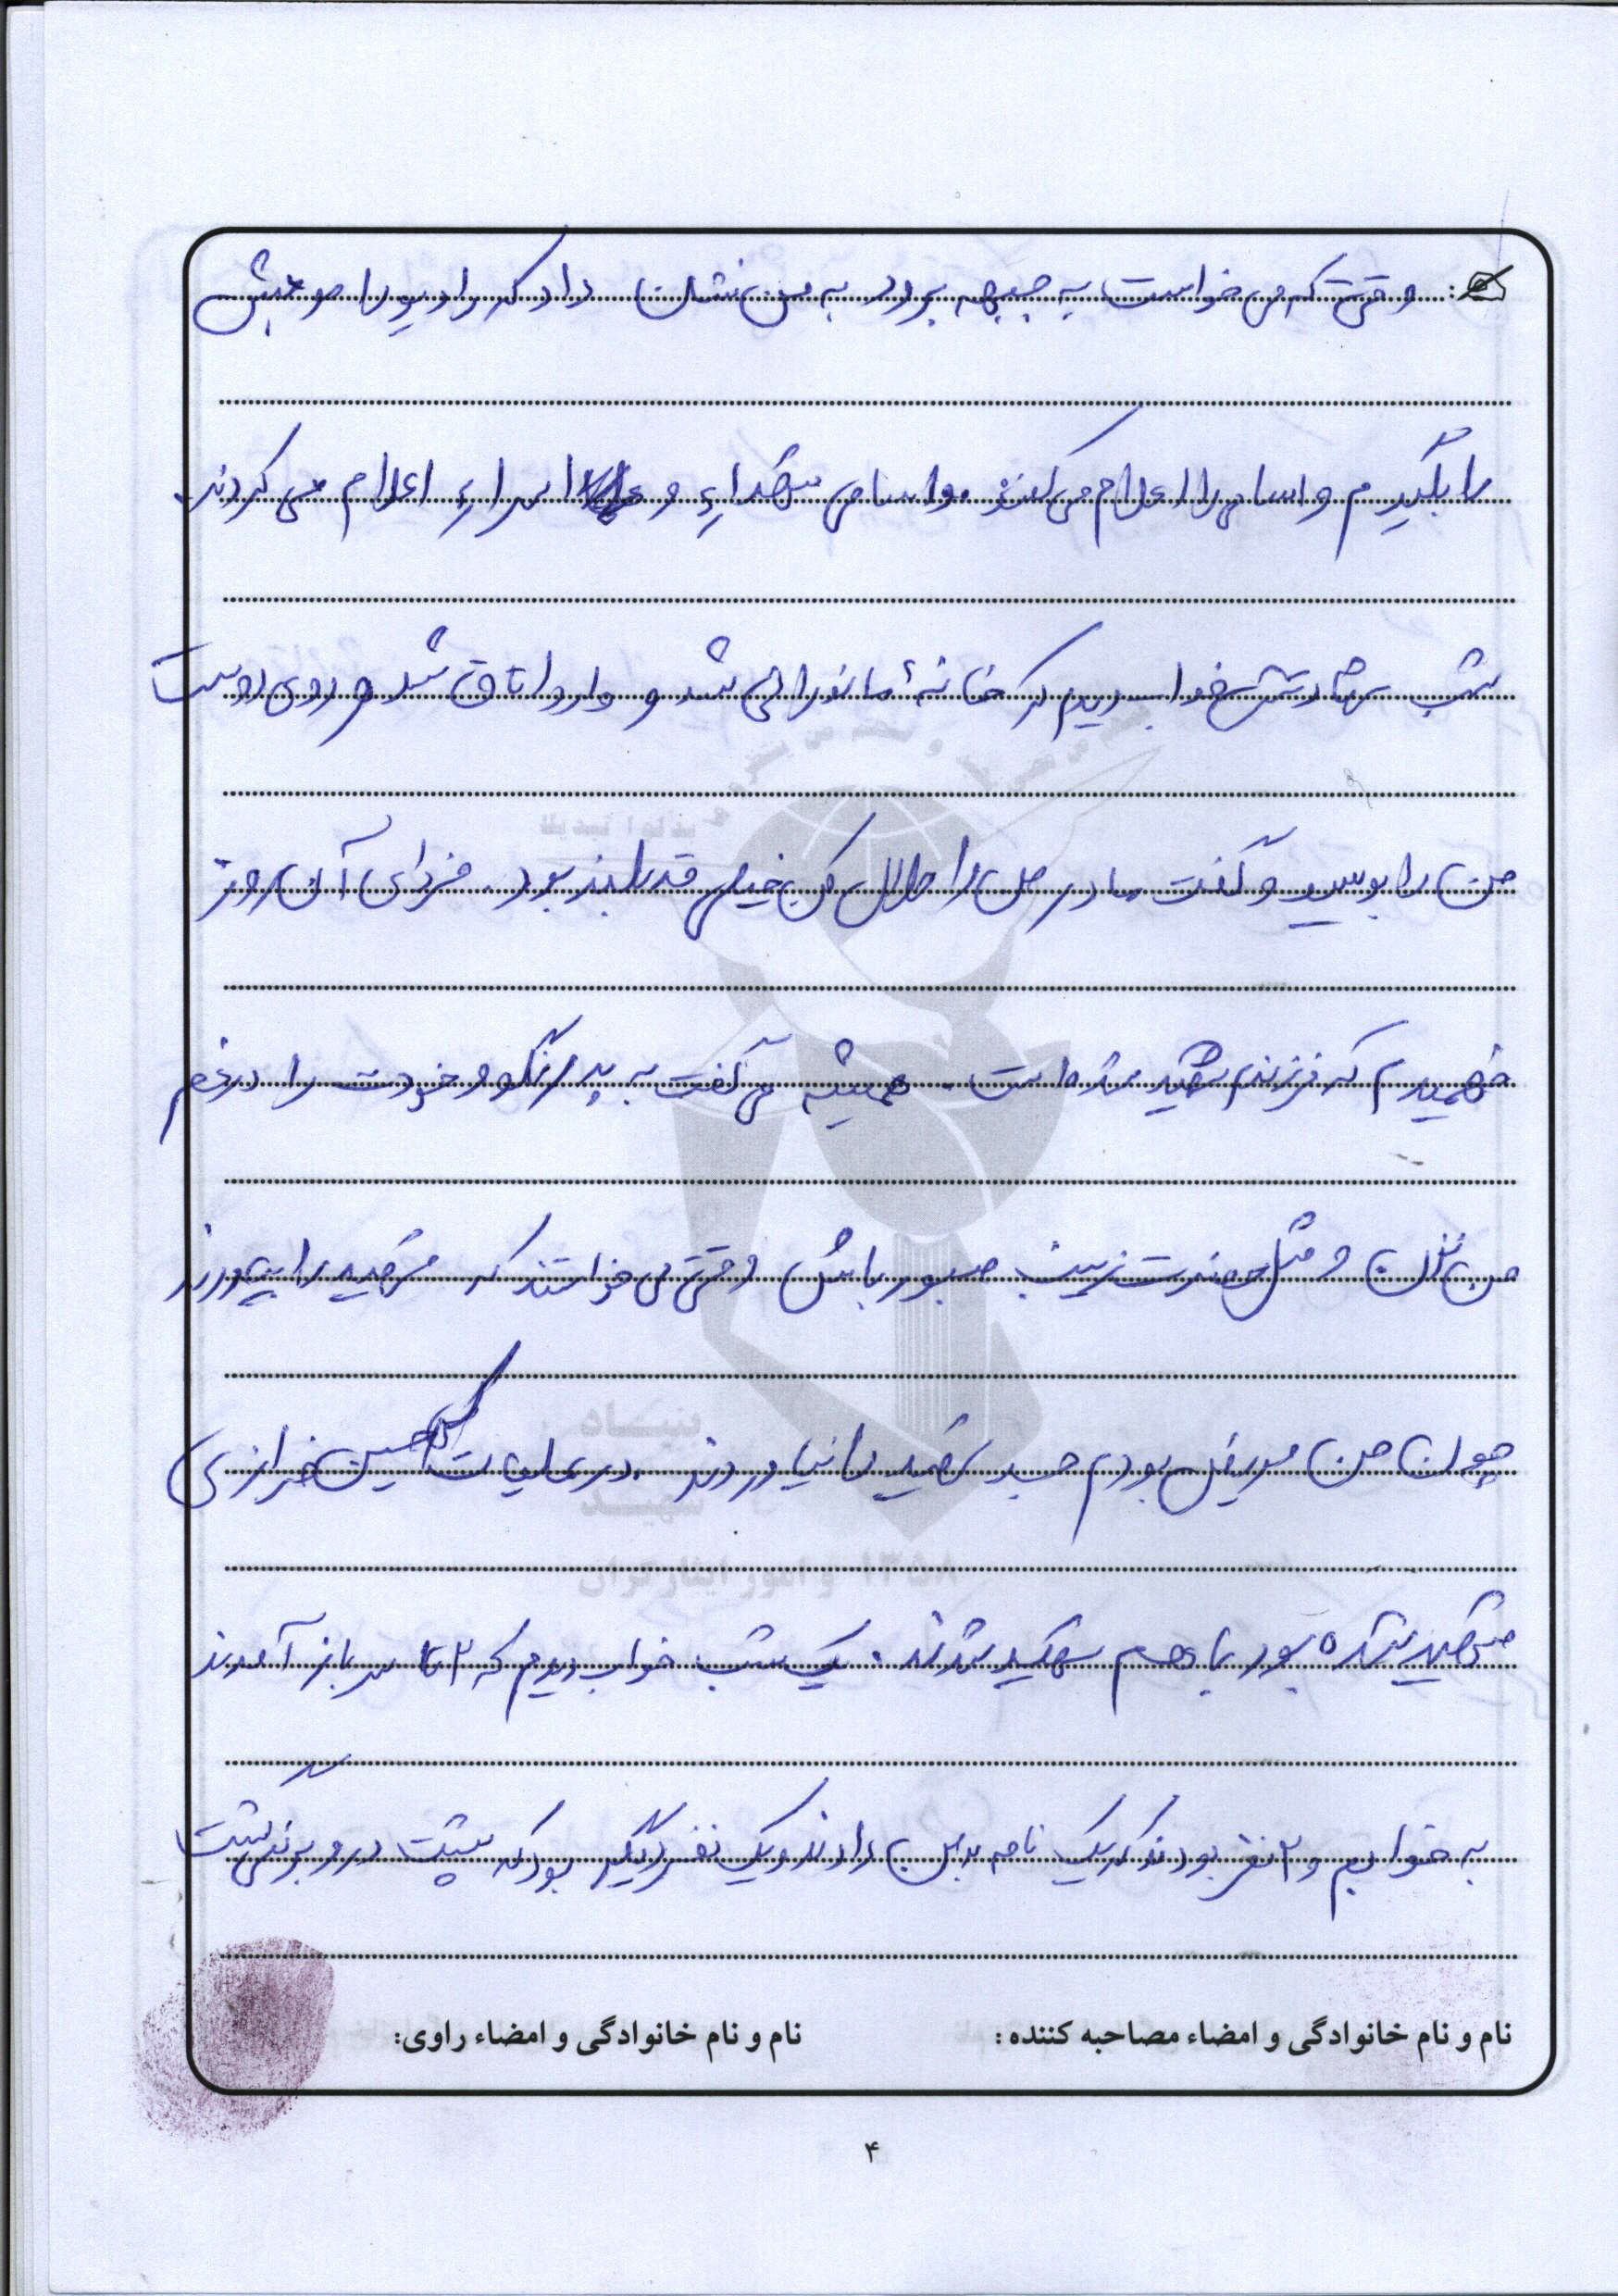 وقتی که می خواست به جبهه برود به من نشان داد که رادیو را موجش
را بگیرم و اسامی را اعلام می کنند و اسامی شهداء و اسراء اعلام می کردند.
شب شهادتش خواب دیدم که خانهٔ ما نورانی شد و وارد اتاق شد و روی دوست
من را بوسید و گفت مادر من را حلال کن خیلی قد بلند بود. فردای آن روز
فهمیدم که فرزندم شهید شده است. همیشه می گفت به پدرم نگو و خودت را در غم
من نزن و مثل حضرت زینب صبور باش وقتی می خواستند که شهید را بیاورند
چون من مریض بودم جسد شهید را نیاوردند. در عملیات حسین خرازی
شهید شده بود با هم شهید شدند. یک شب خواب دیدم که ۲ تا سرباز آمدند
به خوابم و ۲ نفر بودند که یک نامه به من دادند و یک نفر دیگر بود که پشت در و برنمی گشت
نام و نام خانوادگی و امضاء مصاحبه کننده :
نام و نام خانوادگی و امضاء راوی:
۴